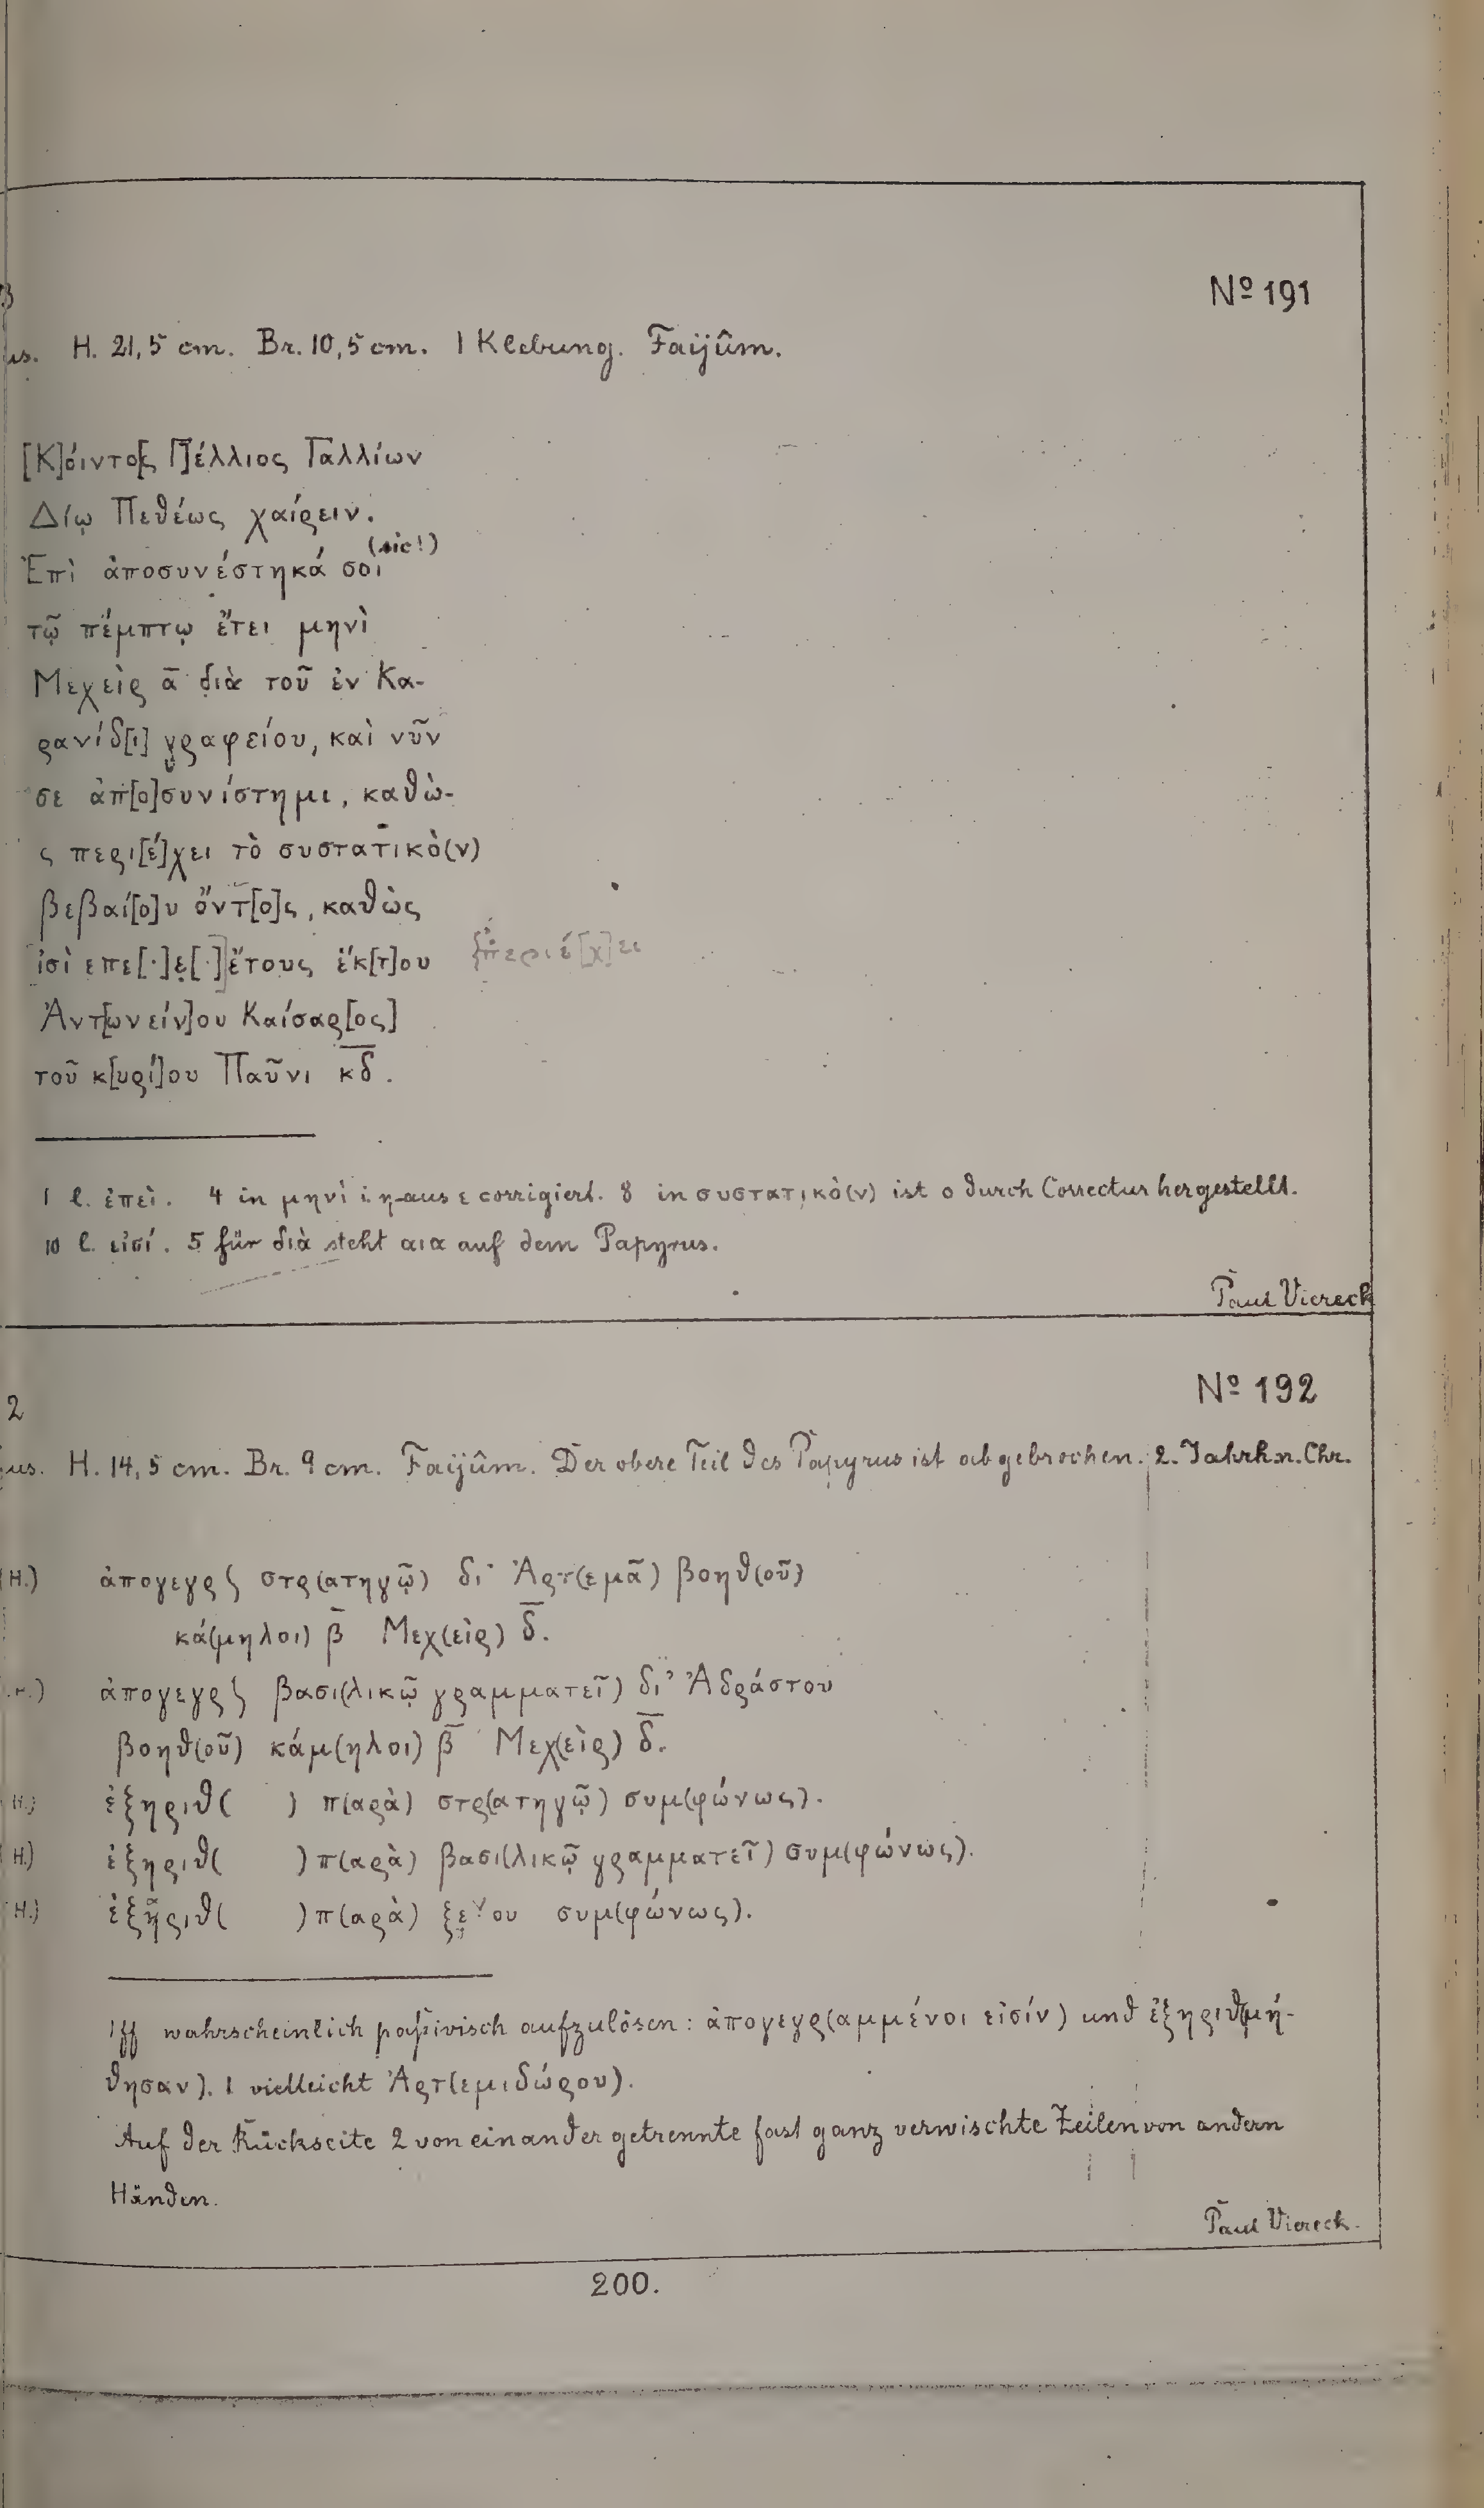 Nº 191
us. H. 21,5 cm. Br. 10,5 cm. 1 Klebung. Faijûm.
[Κ]όιντο[ς Γ]έλλιος Γαλλίων
Δίῳ Πεθέως χαίρειν.
(sic!)
Ἐπὶ ἀποσυνέστηκά σοι
τῷ πέμπτῳ ἔτει μηνὶ
Μεχεὶρ ᾱ διὰ τοῦ ἐν Κα-
ρανίδ[ι] γραφείου, καὶ νῦν
σε ἀπ[ο]συνίστημι, καθὼ-
ς περι[έ]χει τὸ συστατικὸ(ν)
βεβαί[ο]υ ὄντ[ο]ς, καθὼς
ἰσὶ επε[·]ε̣[·]ἔτους ἕκ[τ]ου περιέ[χ]ει
Ἀντ[ωνείν]ου Καίσαρ[ος]
τοῦ κ[υρί]ου Παῦνι κ̅δ̅.
1 l. ἐπεὶ. 4 in μηνὶ i. η aus ε corrigiert. 8 in συστατικὸ(ν) ist ο durch Correctur hergestellt.
10 l. εἰσί. 5 für διὰ steht αια auf dem Papyrus.
Paul Viereck
2 Nº 192
us. H. 14,5 cm. Br. 9 cm. Faijûm. Der obere Teil des Papyrus ist abgebrochen. 2. Jahrh. n. Chr.
H.) ἀπογεγρ⟆ στρ(ατηγῷ) δι᾽ Ἀρτ(εμᾶ) βοηθ(οῦ)
κά(μηλοι) β̅ Μεχ(εὶρ) δ̅.
H.) ἀπογεγρ⟆ βασι(λικῷ γραμματεῖ) δι᾽ Ἀδράστου
βοηθ(οῦ) κάμ(ηλοι) β̅ Μεχ(εὶρ) δ̅.
H.) ἐξηριθ( ) π(αρὰ) στρ(ατηγῷ) συμ(φώνως).
H.) ἐξηριθ( ) π(αρὰ) βασι(λικῷ γραμματεῖ) συμ(φώνως).
H.) ἐξηριθ( ) π(αρὰ) ξε ου συμ(φώνως).
1ff wahrscheinlich passivisch aufzulösen: ἀπογεγρ(αμμένοι εἰσίν) und ἐξηριθ(μή-
θησαν). 1 vielleicht Ἀρτ(εμιδώρου).
Auf der Rückseite 2 von einander getrennte fast ganz verwischte Zeilen von andern
Händen.
Paul Viereck.
200.